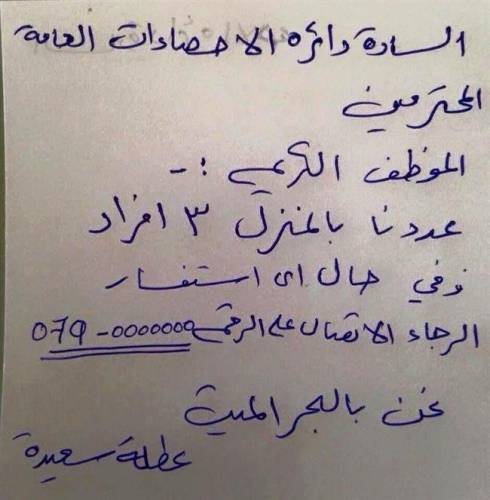 السادة دائره الاحصاءات العامة
المحترمين
الموظف الكريم :-
عددنا بالمنزل ٣ افراد
وفي حال اي استفسار
الرجاء الاتصال على الرقم 079-0000000
نحن بالبحر الميت
عطلة سعيدة